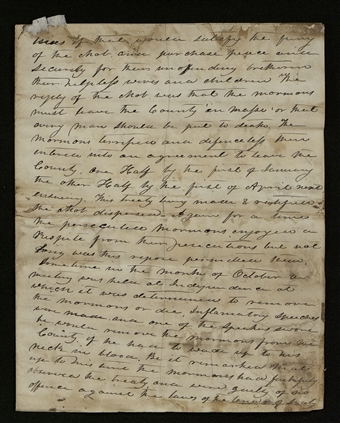 lives if that would satisfy the fury
of the Mob and purchase peace and
security for their unofending brethren
their helpless wives and children The
reply of the Mob was that the mormons
must leave the County en masse or that
every man should be put to death. The
Mormons terrified and defenceless then
entered into an agreement to leave the
County. One Half by the first of January
the other Half by the first of April next
ensuing. This treaty being made & ratified
the Mob dispersed. Again for a time
the persecuted Mormons enjoyed a
Respite from their persecutions but not
long was this repose permitted them.
Sometime in the month of October a
meeting was held at Independence at
which it was determined to remove
the mormons or die. Inflamatory Speeches
were made and one of the Speakers swore
he would remove the Mormons from the
County if he had to wade up to his
neck in blood. Be it remarked that
up to this time the mormons had faithfully
observed the treaty and were guilty of no
offence against the laws of the land